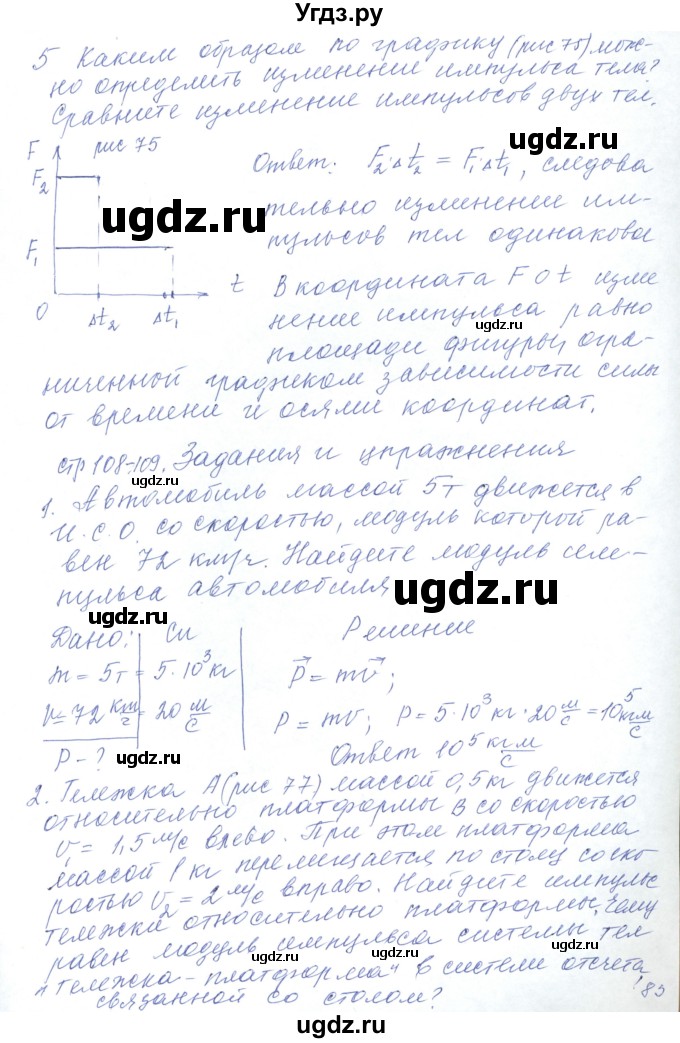 Угдз.ру
5 Каким образом по графику (рис 75) мож-
но определить изменение импульса тела?
Сравните изменение импульсов двух тел.
F рис 75
F₂
F₁
0
Δt₂ Δt₁
t
Ответ: F₂·Δt₂ = F₁·Δt₁, следова
тельно изменение им-
пульсов тел одинаковы
В координата F 0 t изме
нение импульса равно
площади фигуры огра-
ниченной графиком зависимости силы
от времени и осями координат.
стр 108-109. Задания и упражнения
1. Автомобиль массой 5т движется в
И.С.О. со скоростью, модуль которой ра-
вен 72 км/ч. Найдите модуль им-
пульса автомобиля
Дано: Си Решение
m = 5т = 5·10³ кг
V = 72 км/ч = 20 м/с
P - ?
P⃗ = mv⃗;
P = mv; P = 5·10³ кг · 20 м/с = 10⁵ кгм/с
Ответ 10⁵ кгм/с
2. Тележка А (рис 77) массой 0,5 кг движется
относительно платформы В со скоростью
V₁ = 1,5 м/с влево. При этом платформа
массой 1 кг перемещается по столу со ско
ростью V₂ = 2 м/с вправо. Найдите импульс
тележки относительно платформы. Чему
равен модуль импульса системы тел
"тележка - платформа" в системи отсчета,
связанной со столом?
83
ugdz.ru
ugdz.ru
ugdz.ru
ugdz.ru
ugdz.ru
ugdz.ru
ugdz.ru
ugdz.ru
ugdz.ru